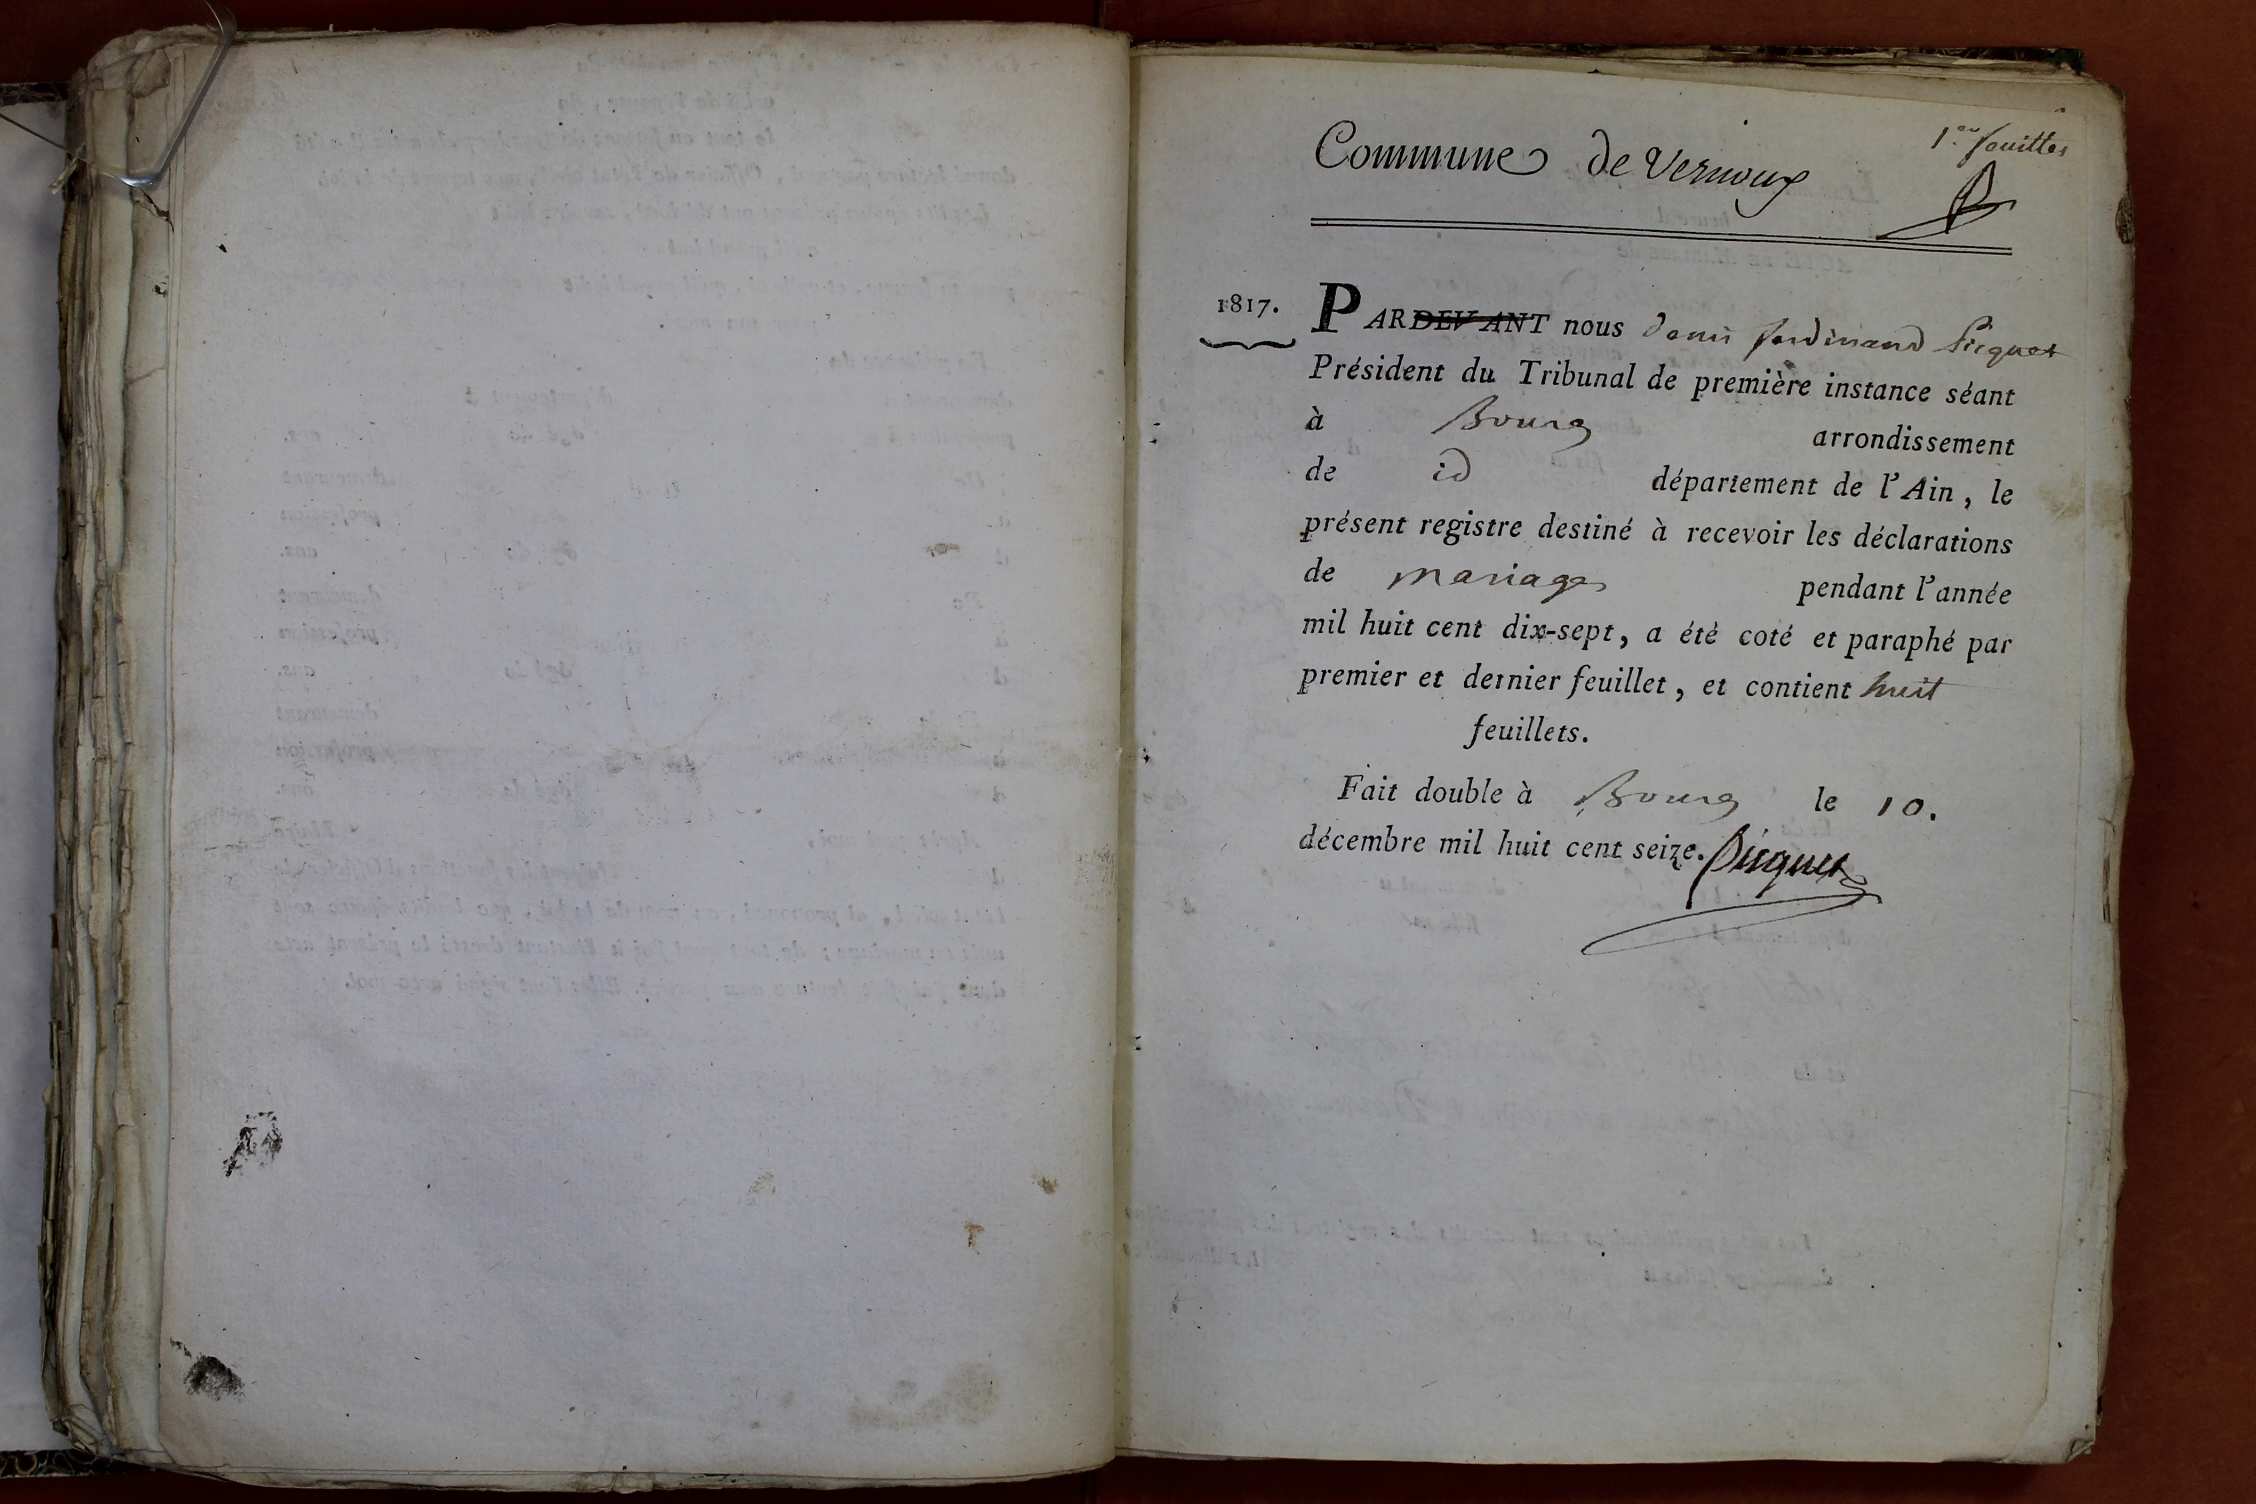 1er feuillet
Commune de Vernoux
1817.
PARDEVANT nous denis ferdinand Picquet
Président du Tribunal de première instance séant
à Bourg arrondissement
de id département de l'Ain, le
présent registre destiné à recevoir les déclarations
de mariages pendant l'année
mil huit cent dix-sept, a été coté et paraphé par
premier et dernier feuillet, et contient huit
feuillets.
Fait double à Bourg le 10.
décembre mil huit cent seize. Picquet